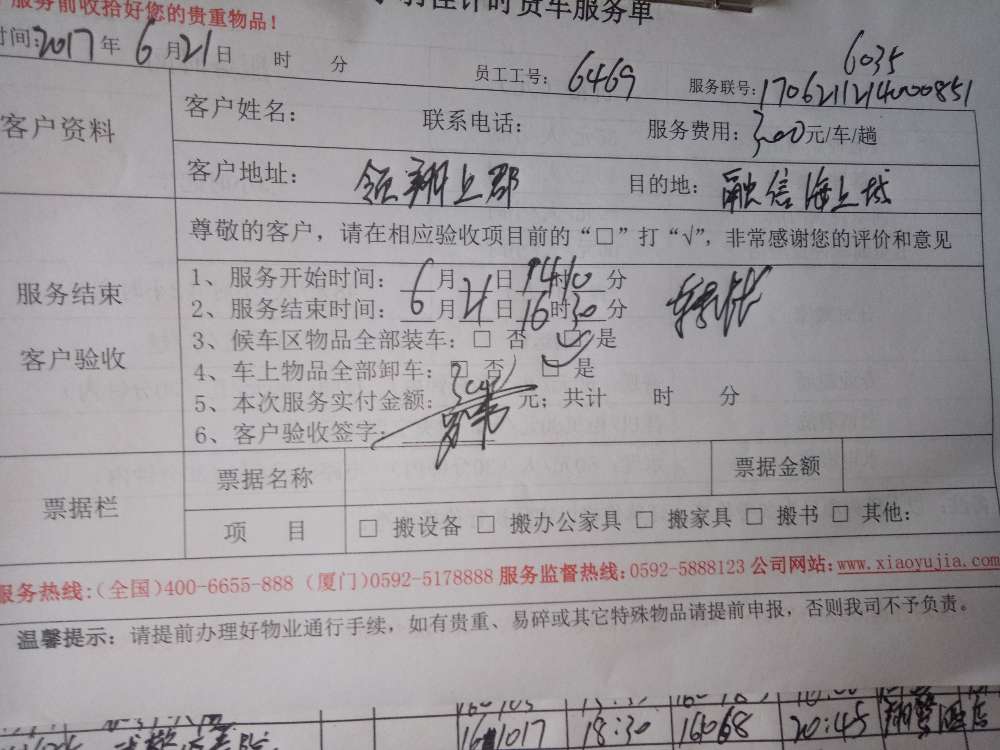 服务前收拾好您的贵重物品！
计时货车服务单
时间:2017年6月21日 时 分
员工工号：6469 6035
服务联号:1706211214000851
客户资料
客户姓名： 联系电话： 服务费用：300元/车/趟
客户地址： 领翔上郡 目的地： 融信海上城
尊敬的客户，请在相应验收项目前的“□”打“√”，非常感谢您的评价和意见
服务结束
客户验收
1、服务开始时间：6月21日14时10分
2、服务结束时间：6月21日16时30分
3、候车区物品全部装车：□ 否 □ 是
4、车上物品全部卸车：□ 否 □ 是
5、本次服务实付金额：300元；共计 时 分
6、客户验收签字：
票据栏
票据名称 票据金额
项 目 □ 搬设备 □ 搬办公家具 □ 搬家具 □ 搬书 □ 其他：
服务热线：(全国)400-6655-888 (厦门)0592-5178888 服务监督热线：0592-5888123 公司网站：www.xiaoyujia.com
温馨提示：请提前办理好物业通行手续，如有贵重、易碎或其它特殊物品请提前申报，否则我司不予负责。
161017 18:30 16068 20:45 酒店